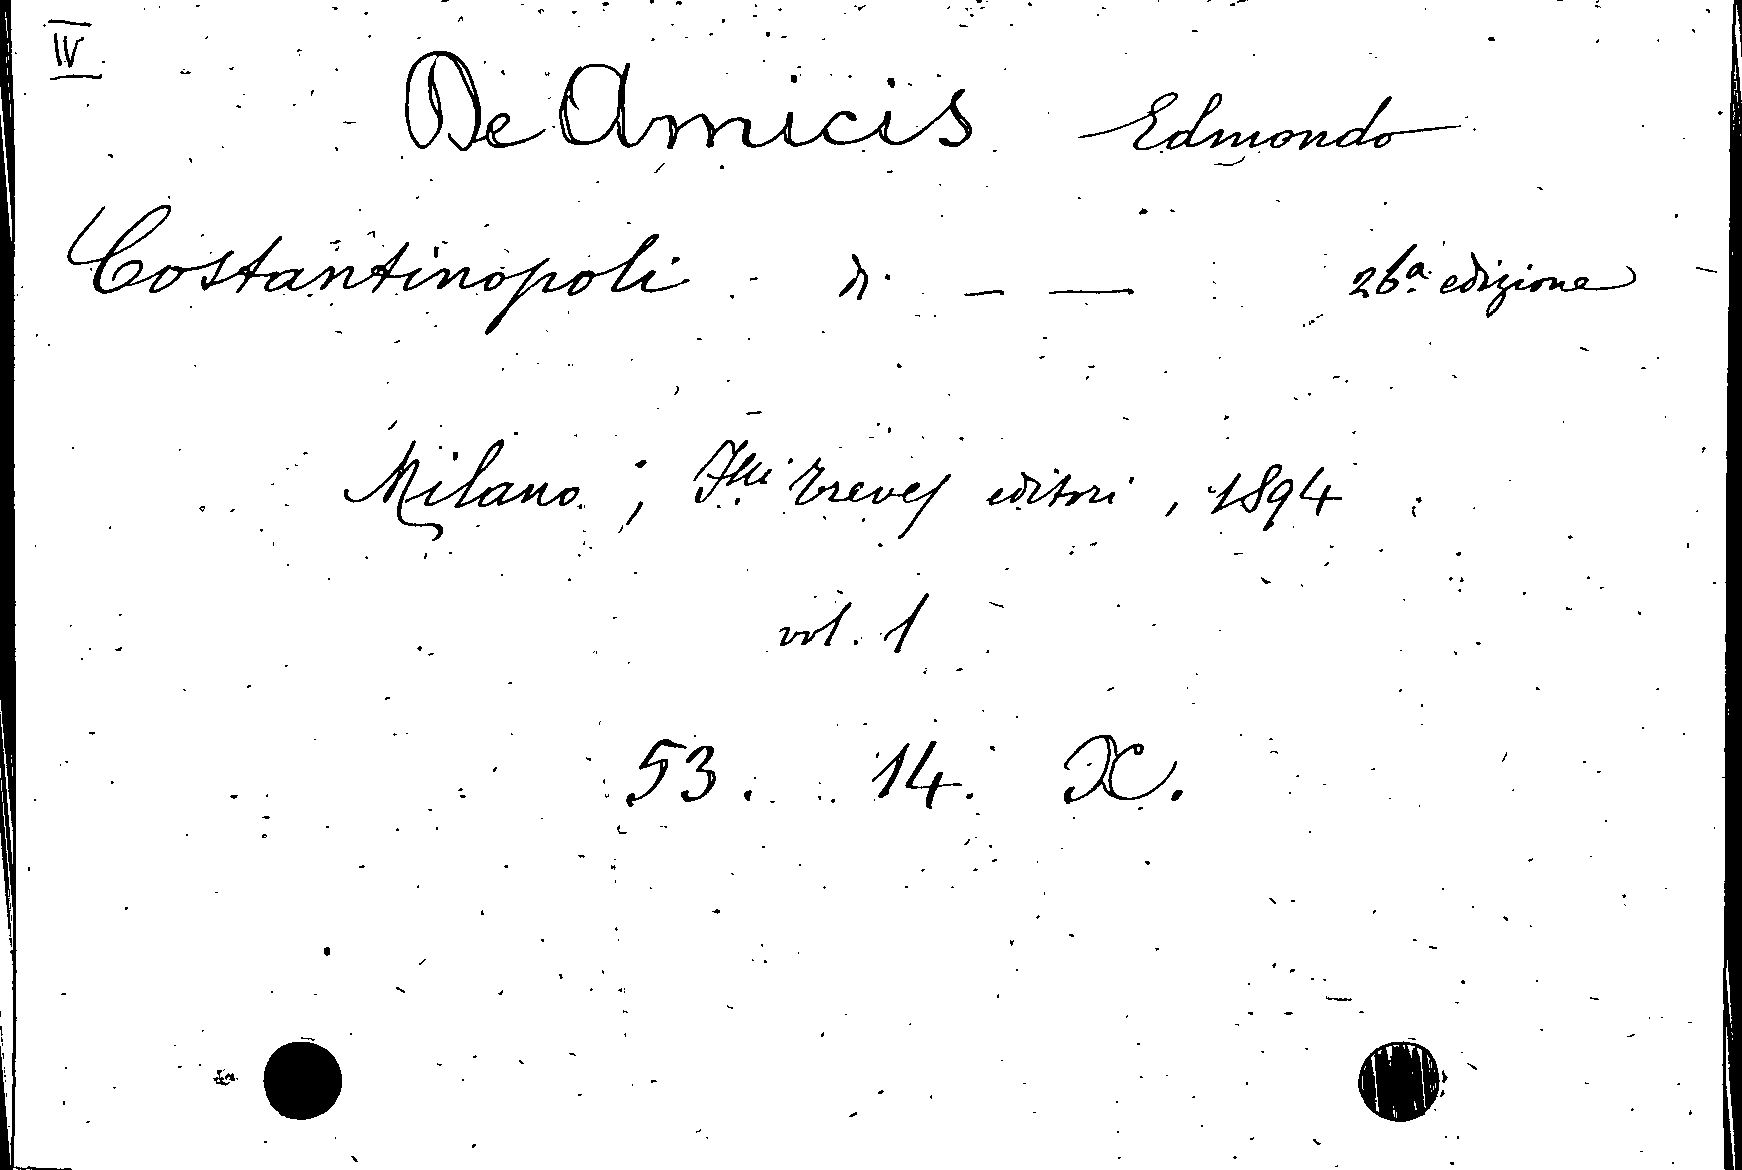 IV
De Amicis Edmondo
Costantinopoli di — — 26ª edizione
Milano ; Flli Treves editori , 1894
vol. 1
53. 14. X.